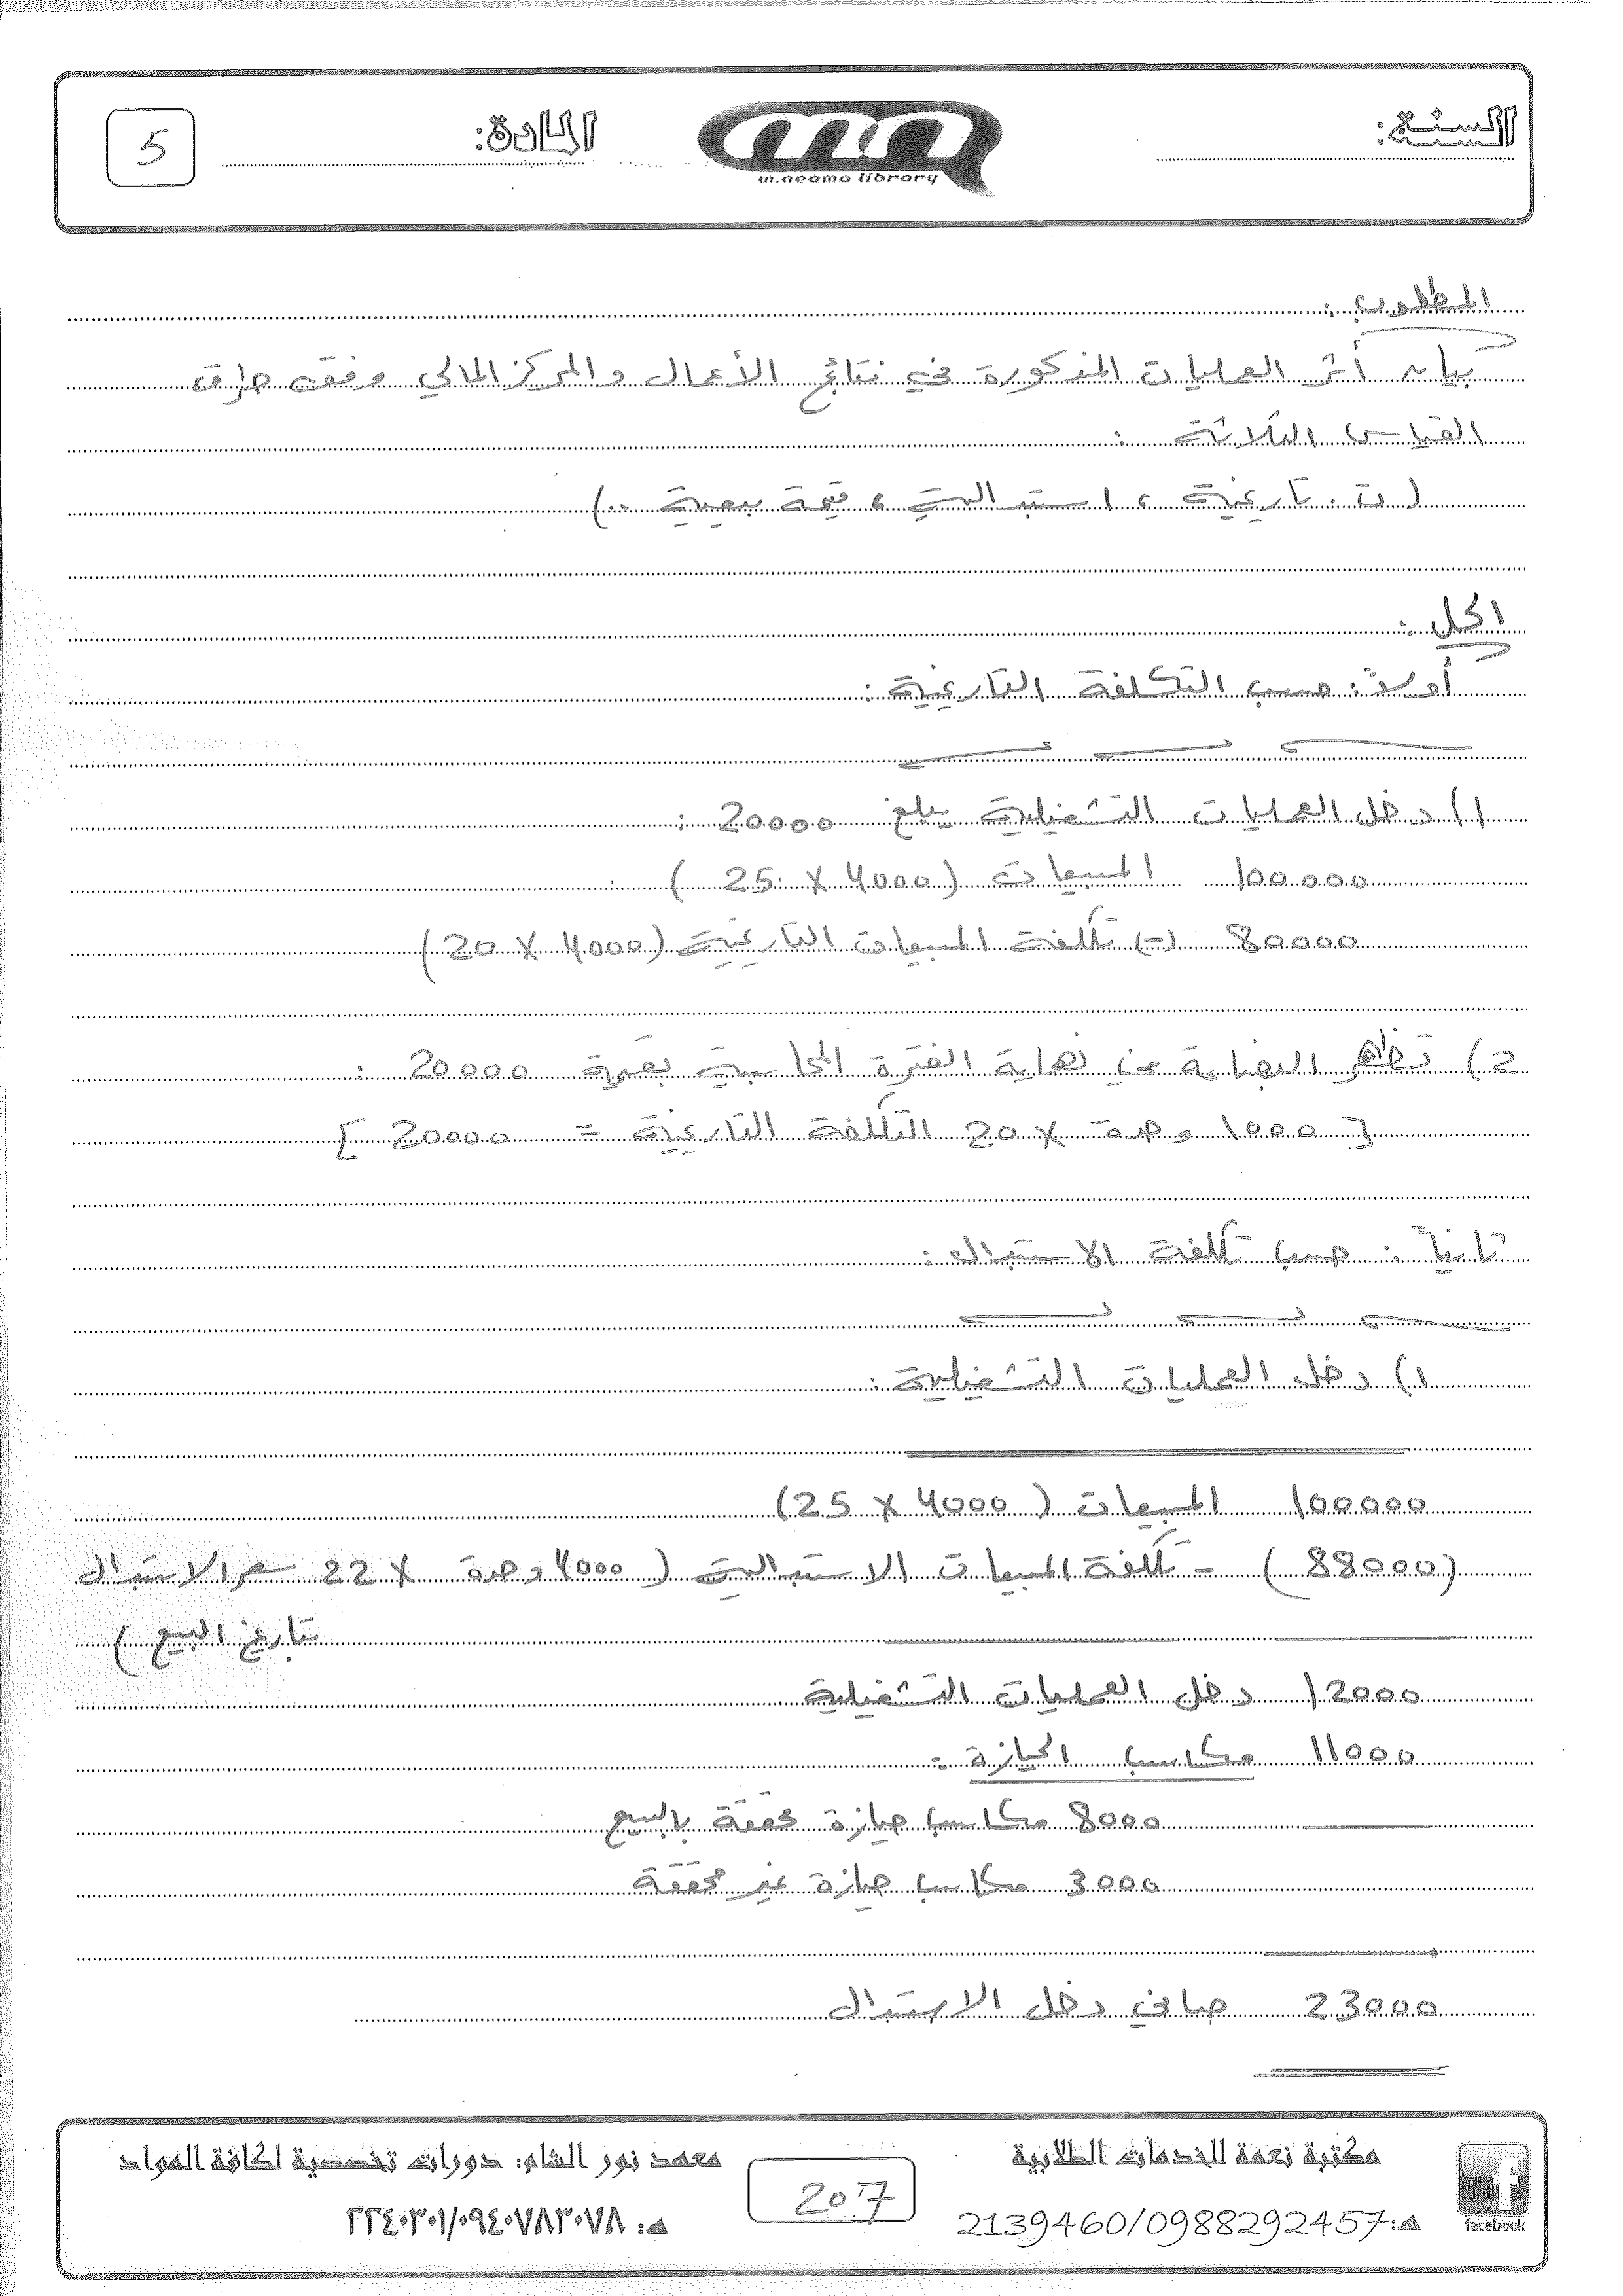 السنة:
m.neama library
المادة:
5
المطلوب:
بيان أثر العمليات المذكورة في نتائج الأعمال والمركز المالي وفق طرق
القياس الثلاثة:
(ت. تاريخية، استبدالية، قيمة بيعية..)
الحل:
أولاً: حسب التكلفة التاريخية:
1) دخل العمليات التشغيلية يبلغ 20000:
100000 المبيعات (4000 × 25)
80000 (-) تكلفة المبيعات التاريخية (4000 × 20)
2) تظهر البضاعة في نهاية الفترة المحاسبية بقيمة 20000:
[1000 وحدة × 20 التكلفة التاريخية = 20000]
ثانياً: حسب تكلفة الاستبدال:
1) دخل العمليات التشغيلية:
100000 المبيعات (4000 × 25)
(88000) - تكلفة المبيعات الاستبدالية (4000 وحدة × 22 سعر الاستبدال
بتاريخ البيع)
12000 دخل العمليات التشغيلية
11000 مكاسب الحيازة:
8000 مكاسب حيازة محققة بالبيع
3000 مكاسب حيازة غير محققة
23000 صافي دخل الاستبدال
facebook
مكتبة نعمة للخدمات الطلابية
هـ: 2139460/0988292457
207
معهد نور الشام: دورات تخصصية لكافة المواد
هـ: ٢٢٤٠٣٠١/٠٩٤٠٧٨٣٠٧٨